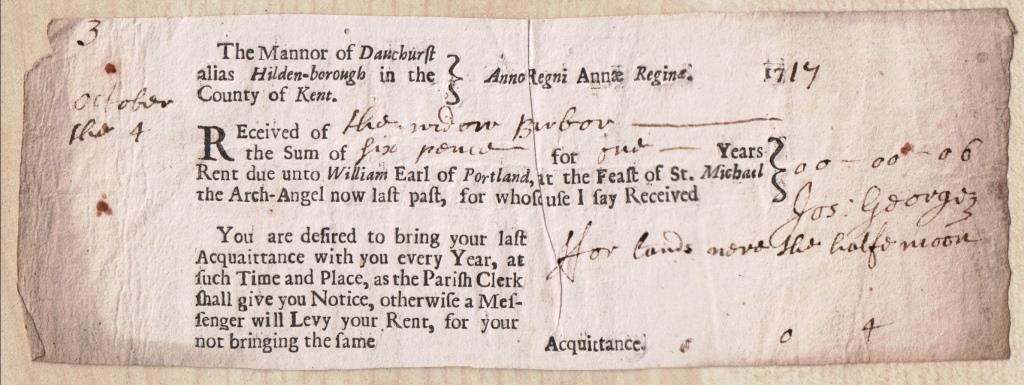 3
The Mannor of Dauchurſt
alias Hilden-borough in the
County of Kent.
Anno Regni Annæ Reginæ. 1717
October
the 4
REceived of the widow Burbor
the Sum of six pence for one Years
Rent due unto William Earl of Portland, at the Feaſt of St. Michael
the Arch-Angel now laſt paſt, for whoſe uſe I ſay Received
00-00-06
Jos: George
You are deſired to bring your laſt
Acquaittance with you every Year, at
ſuch Time and Place, as the Pariſh Clerk
ſhall give you Notice, otherwiſe a Meſ-
ſenger will Levy your Rent, for your
not bringing the ſame
ffor lands nere the halfe moon
Acquittance. 0 0 4